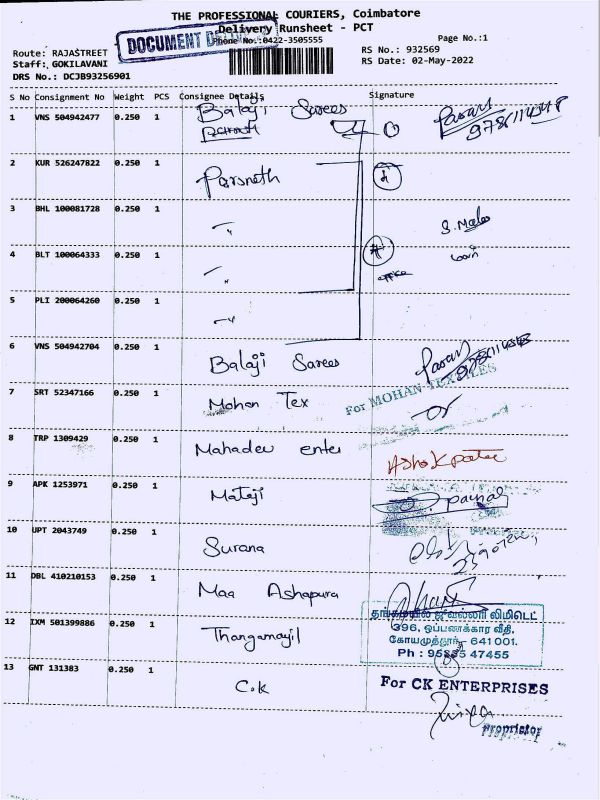 THE PROFESSIONAL COURIERS, Coimbatore
Delivery Runsheet - PCT
DOCUMENT
Phone No.:0422-3505555
Page No.:1
Route: RAJASTREET
RS No.: 932569
Staff: GOKILAVANI
RS Date: 02-May-2022
DRS No.: DCJB93256901
S No Consignment No Weight PCS Consignee Details Signature
1 VNS 504942477 0.250 1 Balaji Sarees
2 KUR 526247822 0.250 1 Parsneth
3 BHL 100081728 0.250 1 〃
4 BLT 100064333 0.250 1 〃
5 PLI 200064260 0.250 1 〃
6 VNS 504942704 0.250 1 Balaji Sarees
7 SRT 52347166 0.250 1 Mohan Tex For MOHAN TEXTILES
8 TRP 1309429 0.250 1 Mahadev enter Ashok patel
9 APK 1253971 0.250 1 Mataji
10 UPT 2043749 0.250 1 Surana
11 DBL 410210153 0.250 1 Maa Ashapura
12 IXM 501399886 0.250 1 Thangamayil
தங்கமயில் ஜுவல்லரி லிமிடெட்
396, ஒப்பணக்கார வீதி,
கோயமுத்தூர் - 641 001.
13 GNT 131383 0.250 1 C.K
For CK ENTERPRISES
Proprietor